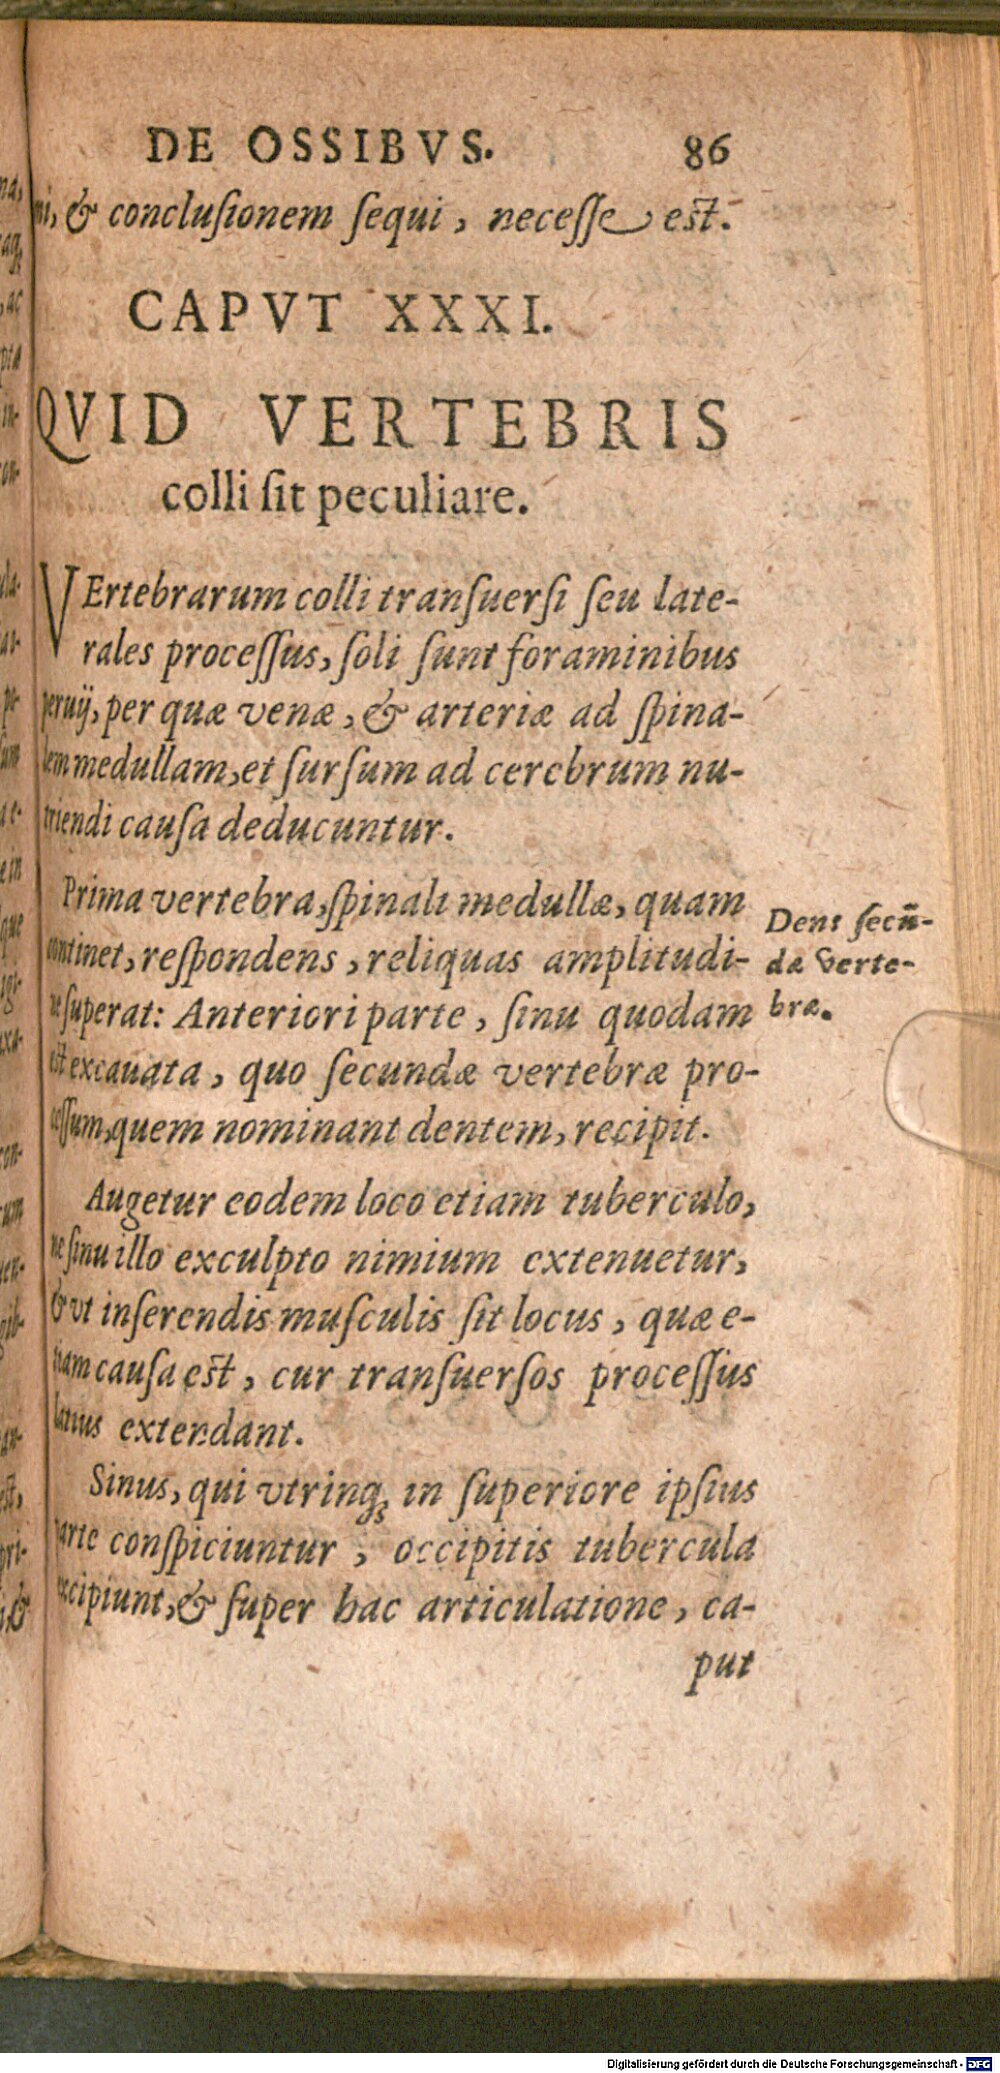 DE OSSIBVS. 86
ni, & conclusionem sequi, necesse est.
CAPVT XXXI.
QVID VERTEBRIS
colli sit peculiare.
VErtebrarum colli transuersi seu late-
rales processus, soli sunt foraminibus
peruij, per quæ venæ, & arteriæ ad spina-
lem medullam, et sursum ad cerebrum nu-
triendi causa deducuntur.
Prima vertebra, spinali medullæ, quam
continet, respondens, reliquas amplitudi-
ne superat: Anteriori parte, sinu quodam
est excauata, quo secundæ vertebræ pro-
cessum, quem nominant dentem, recipit.
Dens secū-
dæ verte-
bræ.
Augetur eodem loco etiam tuberculo,
ne sinu illo exculpto nimium extenuetur,
& vt inserendis musculis sit locus, quæ e-
tiam causa est, cur transuersos processus
latius extendant.
Sinus, qui vtrinq; in superiore ipsius
parte conspiciuntur, occipitis tubercula
excipiunt, & super hac articulatione, ca-
put
Digitalisierung gefördert durch die Deutsche Forschungsgemeinschaft - DFG